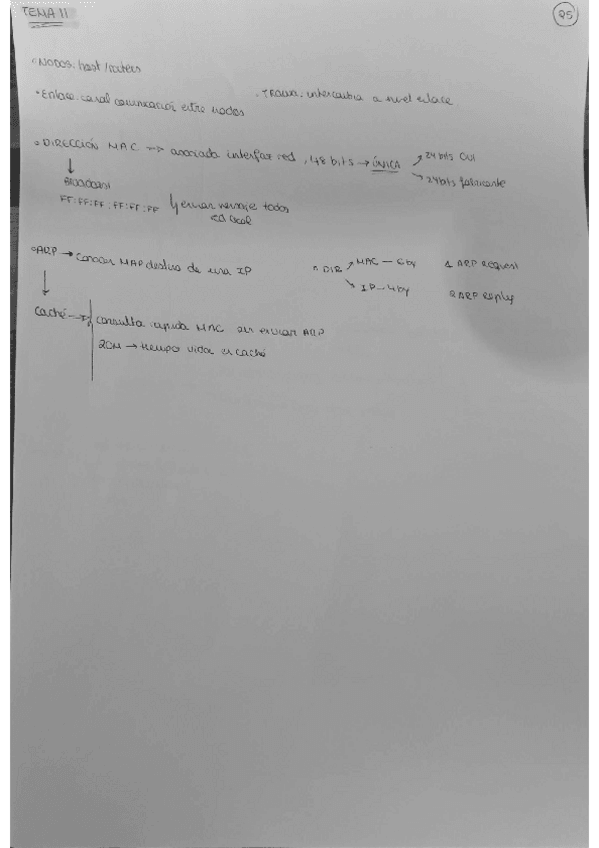 TEMA 11
25
◦NODOS: host/routers
•Enlace: canal comunicación entre nodos
. TRAMA: intercambia a nivel enlace
◦DIRECCIÓN MAC → asociada interfaz red, 48 bits → ÚNICA
24 bits OUI
24bits fabricante
↓
Broadcast
FF:FF:FF:FF:FF:FF
enviar mensaje todos
red local
◦ARP → conocer MAP destino de una IP
DIR
MAC — 6by
IP — 4by
1 ARP request
2 ARP reply
↓
Caché → consulta rápida MAC sin enviar ARP
20M → tiempo vida en caché